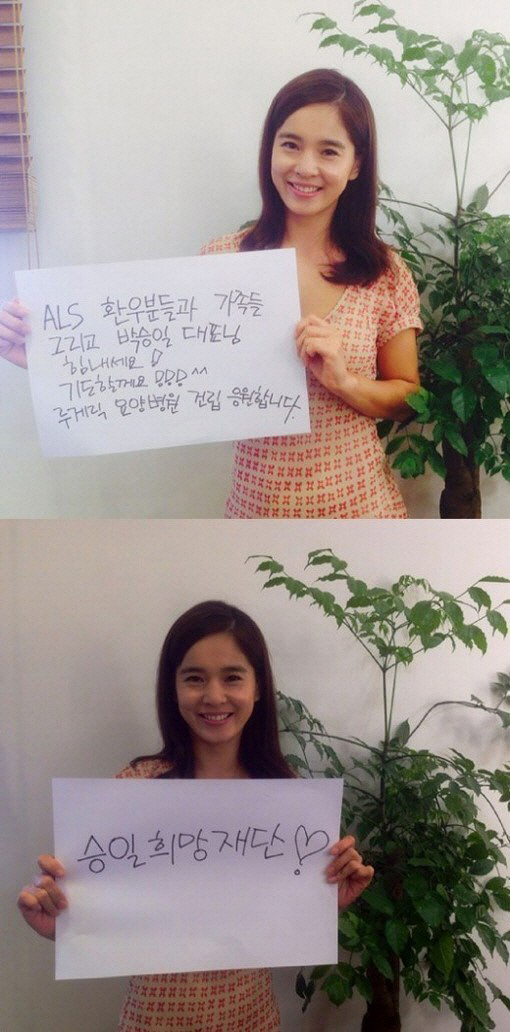 ALS 환우분들과 가족들
그리고 박승일 대표님
힘내세요!
기도할께요!!! ^^
루게릭 요양병원 건립 응원합니다.
승일희망재단!♡